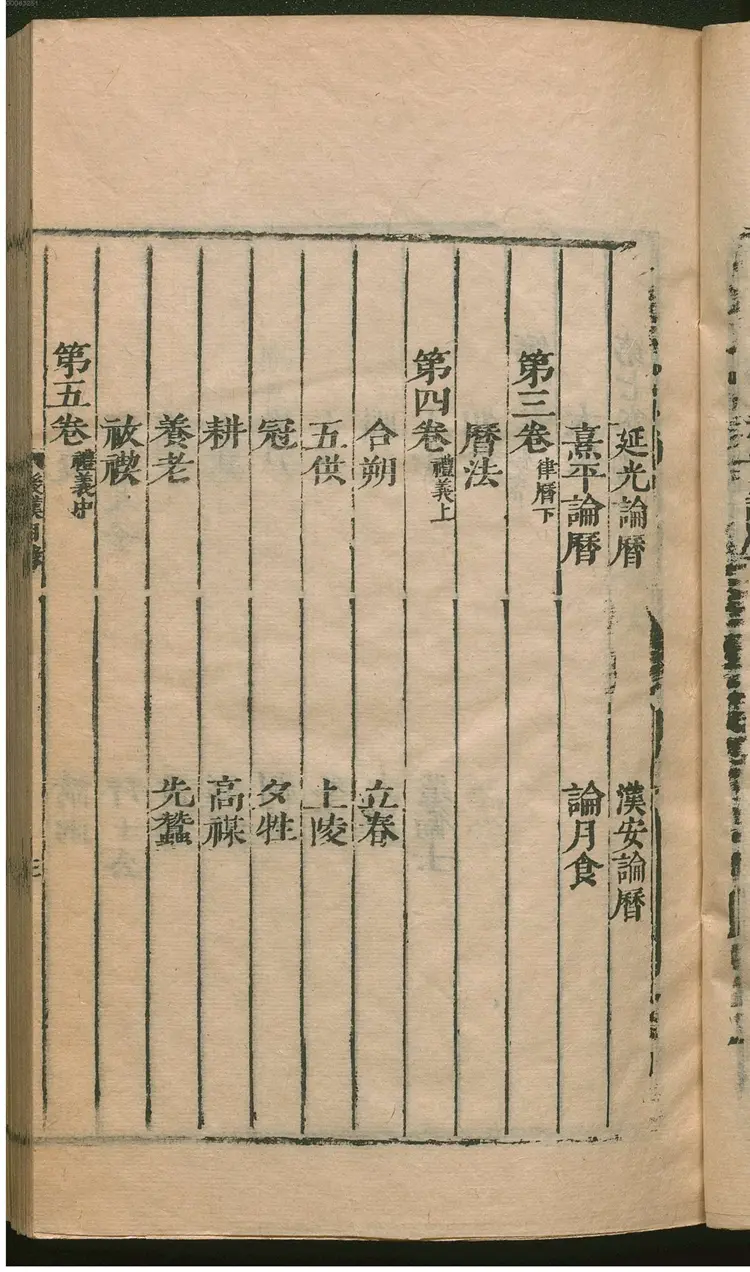 延光論曆　漢安論曆
熹平論曆　論月食
第三卷 律曆下
曆法
第四卷 禮義上
合朔　立春
五供　上陵
冠　夕牲
耕　高禖
養老　先蠶
祓禊
第五卷 禮義中